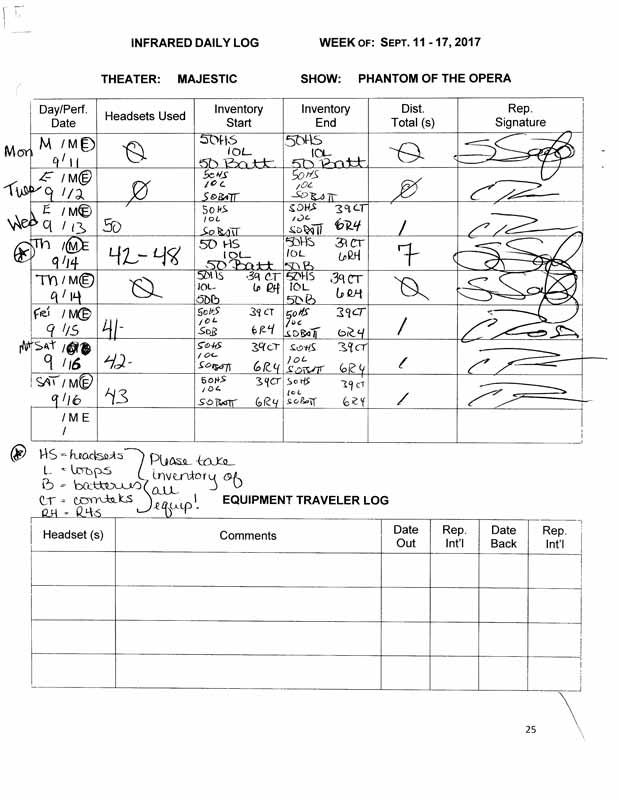 INFRARED DAILY LOG WEEK OF: SEPT. 11 - 17, 2017
THEATER: MAJESTIC SHOW: PHANTOM OF THE OPERA
Day/Perf. Date Headsets Used Inventory Start Inventory End Dist. Total (s) Rep. Signature
Mon M / M E 9/11 Ø 50HS 10L 50 Batt 50HS 10L 50 Batt Ø
Tues E / M E 9/12 Ø 50HS 10L 50BATT 50HS 10L 50BATT Ø
Wed E / M E 9/13 50 50HS 10L 50BATT 50HS 39CT 10L 6R4 50BATT 1
* Th / M E 9/14 42-48 50 HS 10L 50 Batt 50HS 39CT 10L 6R4 50B 7
Th / M E 9/14 Ø 50HS 39 CT 10L 6 R4 50B 50HS 39CT 10L 6R4 50B Ø
Fri / M E 9/15 41- 50HS 39CT 10L 50B 6R4 50HS 39CT 10L 50BATT 6R4 1
Mat SAT / 9/16 42- 50HS 39CT 10L 50BATT 6R4 50HS 39CT 10L 50BATT 6R4 1
SAT / M E 9/16 43 50HS 39CT 10L 50BATT 6R4 50HS 39CT 10L 50BATT 6R4 1
/ M E
/
* HS = headsets
L = loops
B = batteries
CT = comteks
RH = R4s
Please take
inventory of
all
equip!
EQUIPMENT TRAVELER LOG
Headset (s) Comments Date Out Rep. Int'l Date Back Rep. Int'l
25